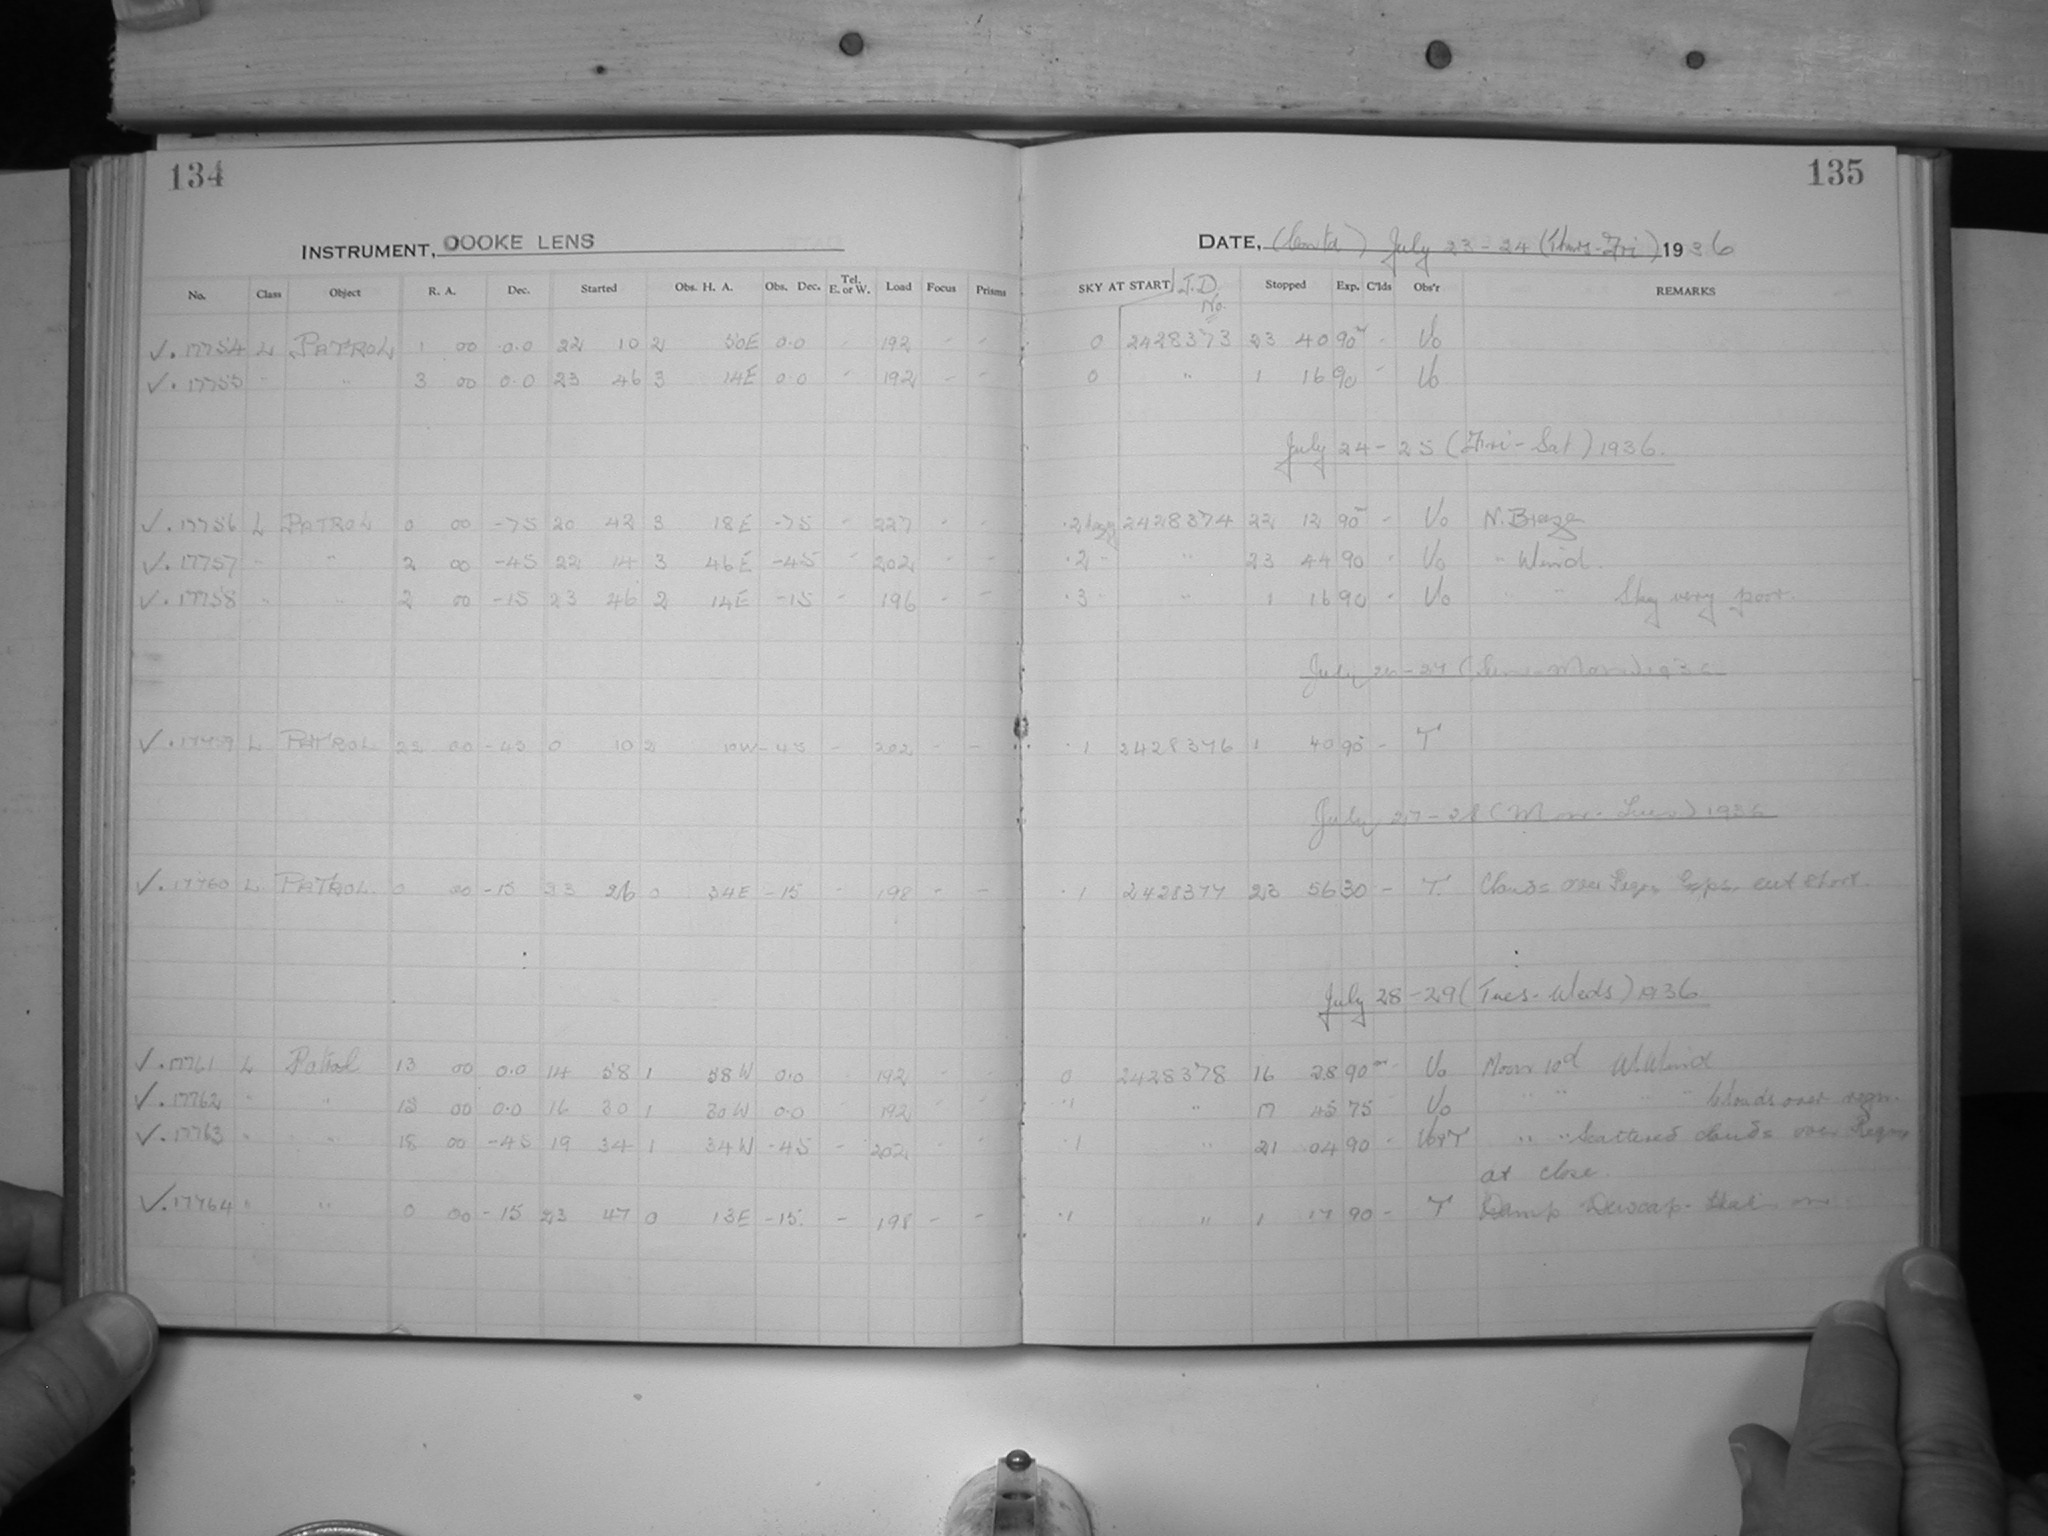 134
135
INSTRUMENT, COOKE LENS
DATE, (Contd) July 23-24 (Thurs-Fri) 1936
No. Class Object R. A. Dec. Started Obs. H. A. Obs. Dec. Tel. E. or W. Load Focus Prisms SKY AT START J.D. No. Stopped Exp. C'lds Obs'r REMARKS
✓. 17754 L PATROL 1 00 0.0 22 10 2 50E 0.0 - 192 - - 0 2428373 23 40 90m - Uo
✓. 17755 " " 3 00 0.0 23 46 3 14E 0.0 - 192 - - 0 " 1 16 90 - Uo
July 24-25 (Fri-Sat) 1936.
✓. 17756 L PATROL 0 00 -75 20 42 3 18E -75 - 227 - - .2 hazy 2428374 22 12 90m - Uo N. Breeze
✓. 17757 - " 2 00 -45 22 14 3 46E -45 - 202 - - .2 " " 23 44 90 - Uo " Wind.
✓. 17758 " " 2 00 -15 23 46 2 14E -15 - 196 - - .3 " 1 16 90 - Uo " " Sky very poor.
July 26-27 (Sun-Mon) 1936
✓. 17759 L PATROL 22 00 -45 0 10 2 10W -45 - 202 - - .1 2428376 1 40 90 - T
July 27-28 (Mon-Tues) 1936
✓. 17760 L PATROL. 0 00 -15 23 26 0 34E -15 - 198 - - .1 2428377 23 56 30 - T. Clouds over Region Exps. cut short.
July 28-29 (Tues-Weds) 1936.
✓. 17761 L Patrol 13 00 0.0 14 58 1 58W 0.0 192 - - 0 2428378 16 28 90m - Uo Moon 10d W. Wind
✓. 17762 " " 15 00 0.0 16 30 1 30W 0.0 192 - - .1 " 17 45 75 Uo " " " " Clouds over region.
✓. 17763 " " 18 00 -45 19 34 1 34W -45 - 202 - - .1 " 21 04 90 - Uo&T " " Scattered clouds over Region
at close.
✓. 17764 " " 0 00 -15 23 47 0 13E -15. - 198 - - .1 " 1 17 90 - T Damp Dewcap-heat on